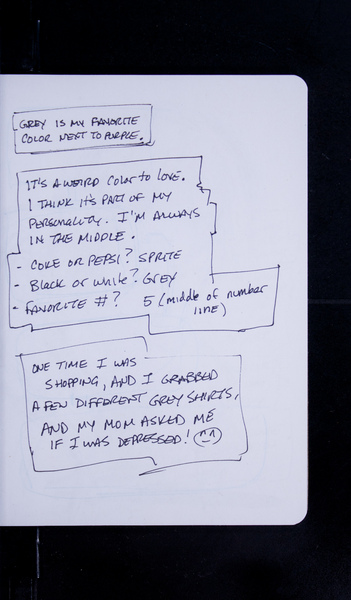 GREY IS MY FAVORITE
COLOR NEXT TO PURPLE.
IT'S A WEIRD COLOR TO LOVE.
I THINK IT'S PART OF MY
PERSONALITY. I'M ALWAYS
IN THE MIDDLE.
- COKE OR PEPSI? SPRITE
- Black or white? GREY
- FAVORITE #? 5 (middle of number
line)
ONE TIME I WAS
SHOPPING, AND I GRABBED
A FEW DIFFERENT GREY SHIRTS,
AND MY MOM ASKED ME
IF I WAS DEPRESSED!